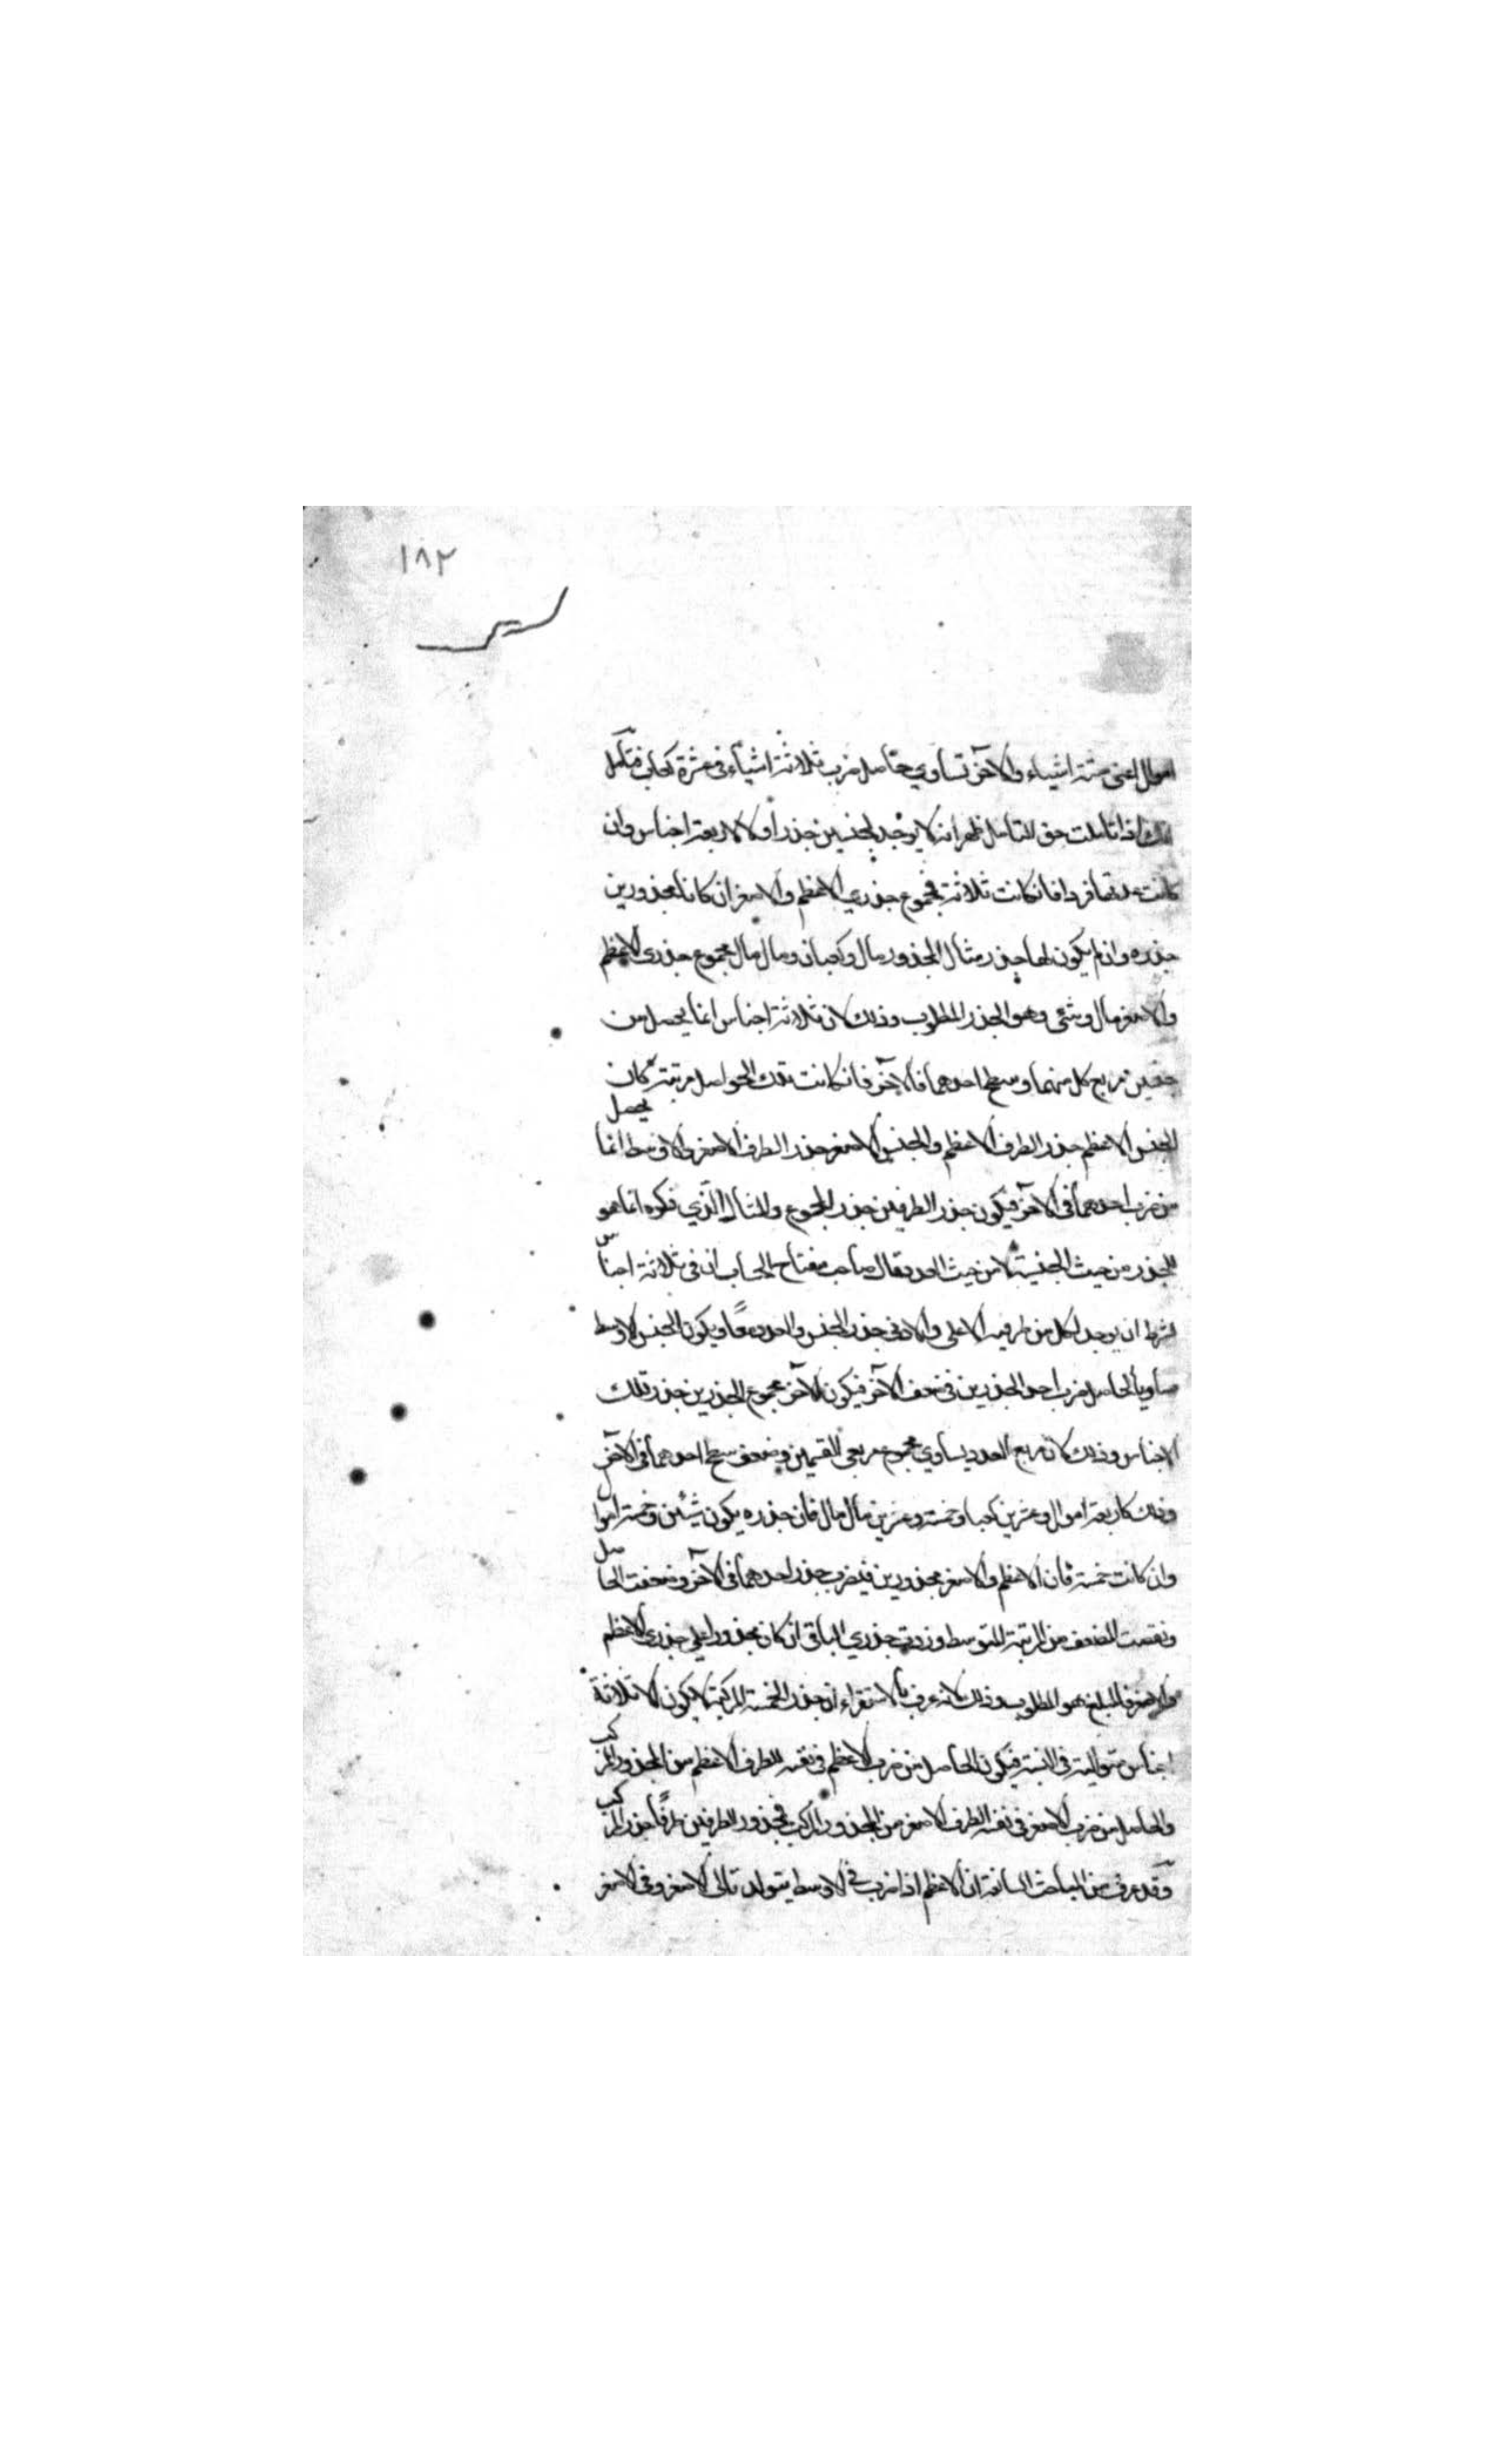 ١٨٢
اموال اعنى ستة اشياء والآخر تساوي حاصل ضرب ثلاثة اشياء فى عشرة كعاب فتأمل
اذا تاملت حق التأمل ظهر انه لا يوجد لجنسين جذر اولا لاربعة اجناس وان
كانت عدتها فردا فان كانت ثلاثة فمجموع جذري الاعظم والاصغر ان كانا مجذورين
جذره وان لم يكون لها جذر مثال المجذور مال وكعبان ومال مال مجموع جذرى الاعظم
والاصغر مال وشئ وهو الجذر المطلوب وذلك لان ثلاثة اجناس انما يحصل من
جنسين مربع كل منهما وسطح احدهما فى الآخر فان كانت تلك الحواصل مرتبة كان
الجنس الاعظم جذر الطرف الاعظم والجنس الاصغر جذر الطرف الاصغر والاوسط انما يحصل
من ضرب احدهما فى الآخر فيكون جذر الطرفين جذر المجموع والمثال الذي ذكره انما هو
للجذر من حيث الجنسية لا من حيث العدد قال صاحب مفتاح الحساب ان فى ثلاثة اجناس
شرط ان يوجد لكل من طرفيه الاعلى والادنى جذر الجنس والعدد معًا ويكون الجنس الاوسط
مساويا لحاصل ضرب احد الجذرين فى ضعف الآخر فيكون الآخر مجموع الجذرين جذر تلك
الاجناس وذلك لان مربع العدد يساوي مجموع مربعى القسمين وضعف سطح احدهما فى الآخر
وذلك كاربعة اموال وعشرين كعبا وخمسة وعشرين مال مال فان جذره يكون شيئين وخمسة اموال
وان كانت خمسة فان الاعظم والاصغر مجذورين فيضرب جذر احدهما فى الآخر وضعفت الحاصل
ونقصت الضعف من المرتبة المتوسط وزدت جذري الباقى ان كان مجذورا على جذرى الاعظم
والاصغر فالمبلغ هو المطلوب وذلك لانه عرف بالاستقراء ان جذر الخمسة المركبة لا يكون الا ثلاثة
اجناس متوالية فى النسبة فيكون الحاصل من ضرب الاعظم فى نفسه الطرف الاعظم من المجذور المركب
والحاصل من ضرب الاصغر فى نفسه الطرف الاصغر من المجذور المركب فجذور الطرفين طرفا جذر المركب
وقد عرف من المباحث السابقة ان الاعظم اذا ضرب فى الاوسط يتولد تالى الاصغر وفى الاصغر